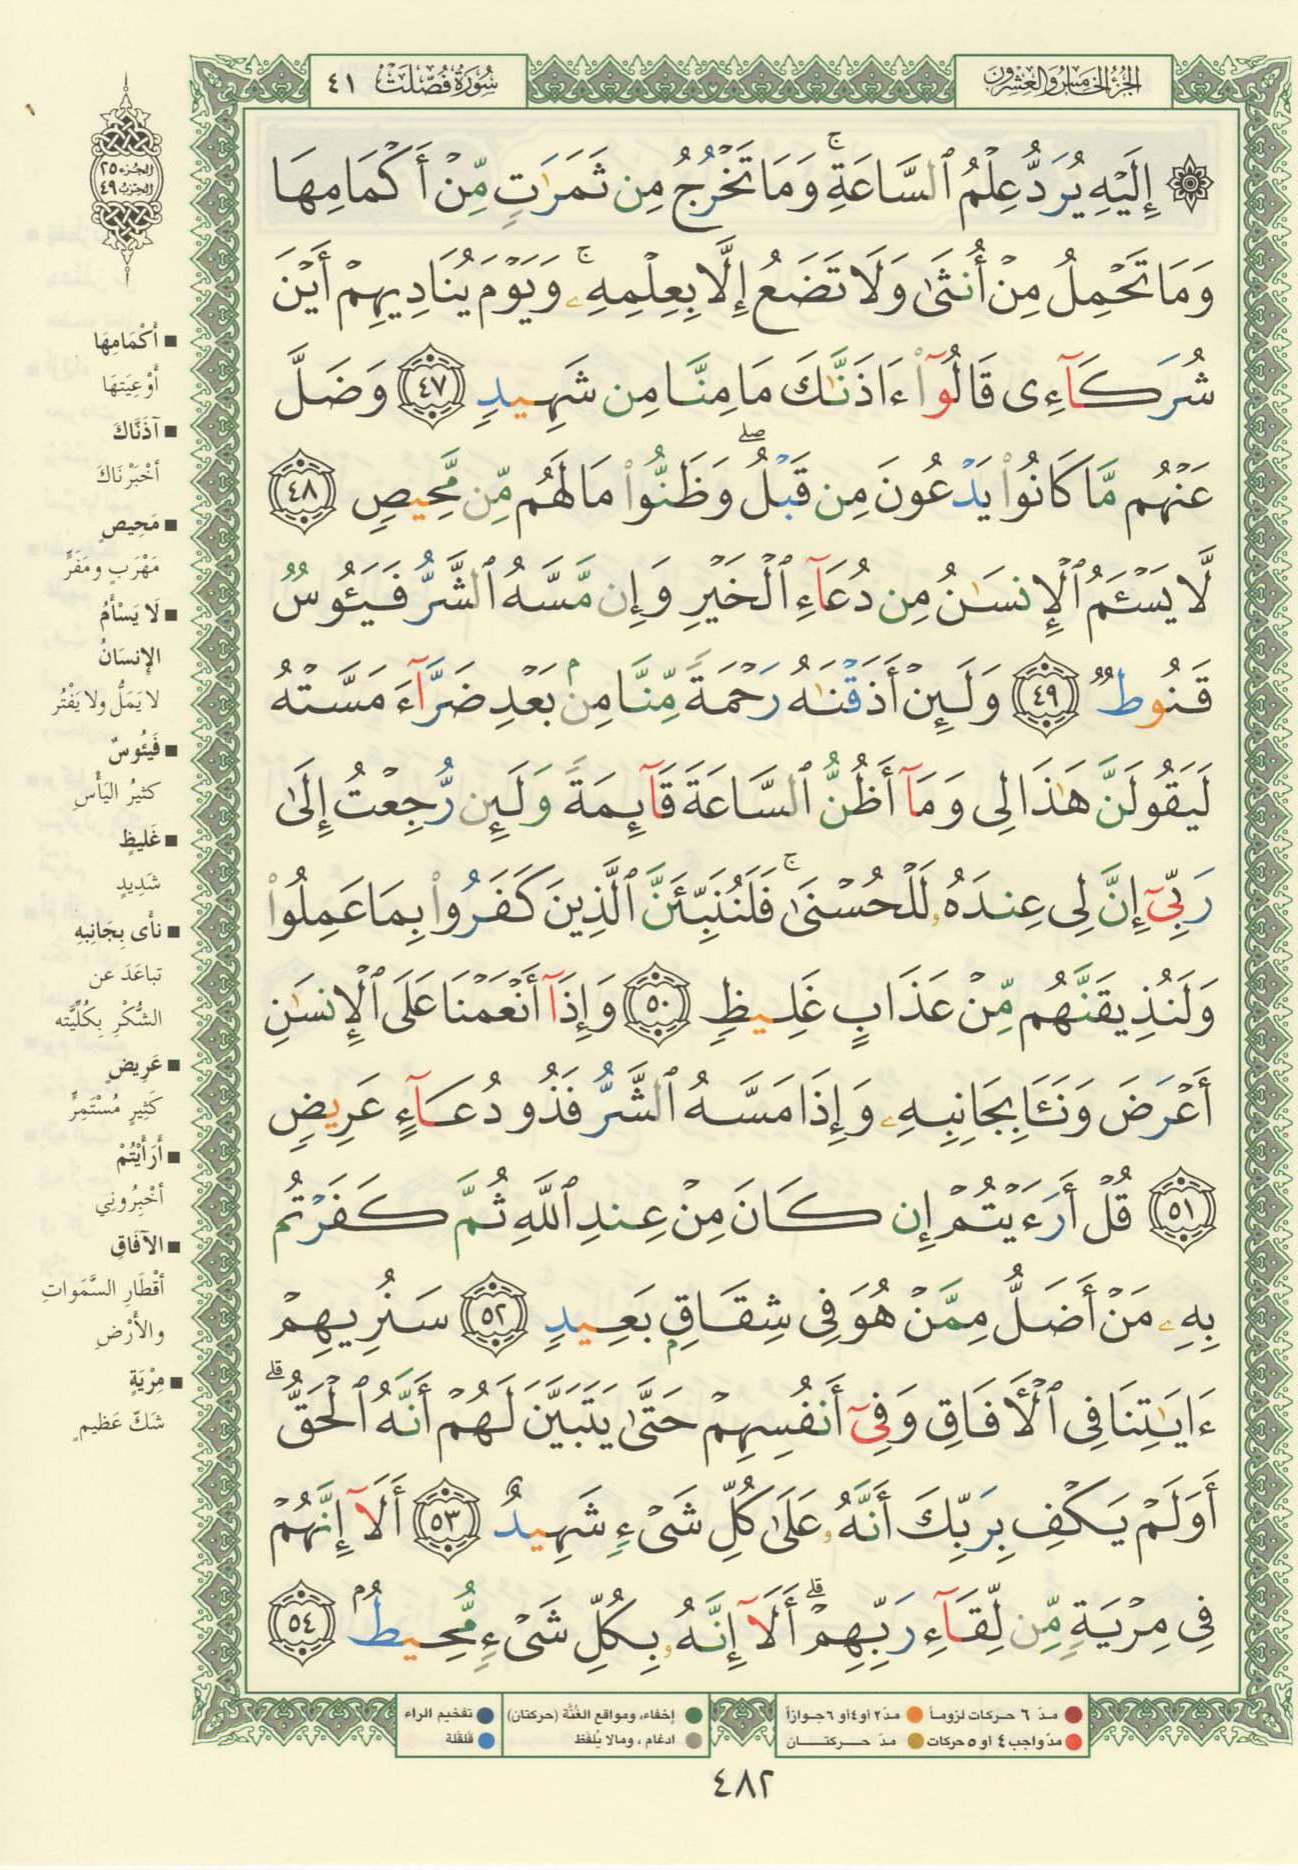 سُورَةُ فُصِّلَتْ ٤١
الجُزْءُ الخَامِسُ وَالعِشْرُونَ
۞ إِلَيْهِ يُرَدُّ عِلْمُ ٱلسَّاعَةِ ۚ وَمَا تَخْرُجُ مِن ثَمَرَٰتٍ مِّنْ أَكْمَامِهَا
وَمَا تَحْمِلُ مِنْ أُنثَىٰ وَلَا تَضَعُ إِلَّا بِعِلْمِهِۦ ۚ وَيَوْمَ يُنَادِيهِمْ أَيْنَ
شُرَكَآءِى قَالُوٓا۟ ءَاذَنَّٰكَ مَا مِنَّا مِن شَهِيدٍ ٤٧ وَضَلَّ
عَنْهُم مَّا كَانُوا۟ يَدْعُونَ مِن قَبْلُ ۖ وَظَنُّوا۟ مَا لَهُم مِّن مَّحِيصٍ ٤٨
لَّا يَسْـَٔمُ ٱلْإِنسَٰنُ مِن دُعَآءِ ٱلْخَيْرِ وَإِن مَّسَّهُ ٱلشَّرُّ فَيَـُٔوسٌ
قَنُوطٌ ٤٩ وَلَئِنْ أَذَقْنَٰهُ رَحْمَةً مِّنَّا مِنۢ بَعْدِ ضَرَّآءَ مَسَّتْهُ
لَيَقُولَنَّ هَٰذَا لِى وَمَآ أَظُنُّ ٱلسَّاعَةَ قَآئِمَةً وَلَئِن رُّجِعْتُ إِلَىٰ
رَبِّىٓ إِنَّ لِى عِندَهُۥ لَلْحُسْنَىٰ ۚ فَلَنُنَبِّئَنَّ ٱلَّذِينَ كَفَرُوا۟ بِمَا عَمِلُوا۟
وَلَنُذِيقَنَّهُم مِّنْ عَذَابٍ غَلِيظٍ ٥٠ وَإِذَآ أَنْعَمْنَا عَلَى ٱلْإِنسَٰنِ
أَعْرَضَ وَنَـَٔا بِجَانِبِهِۦ وَإِذَا مَسَّهُ ٱلشَّرُّ فَذُو دُعَآءٍ عَرِيضٍ
٥١ قُلْ أَرَءَيْتُمْ إِن كَانَ مِنْ عِندِ ٱللَّهِ ثُمَّ كَفَرْتُم
بِهِۦ مَنْ أَضَلُّ مِمَّنْ هُوَ فِى شِقَاقٍۭ بَعِيدٍ ٥٢ سَنُرِيهِمْ
ءَايَٰتِنَا فِى ٱلْـَٔافَاقِ وَفِىٓ أَنفُسِهِمْ حَتَّىٰ يَتَبَيَّنَ لَهُمْ أَنَّهُ ٱلْحَقُّ ۗ
أَوَلَمْ يَكْفِ بِرَبِّكَ أَنَّهُۥ عَلَىٰ كُلِّ شَىْءٍ شَهِيدٌ ٥٣ أَلَآ إِنَّهُمْ
فِى مِرْيَةٍ مِّن لِّقَآءِ رَبِّهِمْ ۗ أَلَآ إِنَّهُۥ بِكُلِّ شَىْءٍ مُّحِيطٌۢ ٥٤
الجزء ٢٥
الحزب ٤٩
■ أَكْمَامِهَا
أَوْعِيَتِهَا
■ آذَنَّاكَ
أَخْبَرْنَاكَ
■ مَحِيصٍ
مَهْرَبٍ ومَفَرٍّ
■ لَا يَسْأَمُ
الإِنسَانُ
لا يَمَلُّ ولا يَفْتُر
■ فَيَئُوسٌ
كثيرُ اليَأْسِ
■ غَليظٍ
شَدِيدٍ
■ نأى بِجَانِبِهِ
تباعَدَ عن
الشُّكْرِ بِكُلِّيَّتِه
■ عَرِيضٍ
كَثِيرٍ مُسْتَمِرٍّ
■ أَرَأَيْتُمْ
أخْبِرُونِي
■ الآفَاقِ
أقْطَارِ السَّمَواتِ
والأَرْضِ
■ مِرْيَةٍ
شَكّ عَظيمٍ
مدّ ٦ حركات لزوماً
مدّ٢ أو٤أو ٦جوازاً
إخفاء، ومواقع الغُنَّة (حركتان)
تفخيم الراء
مدّ واجب ٤ أو ٥ حركات
مدّ حركتان
ادغام ، ومالا يُلفَظ
قلقلة
٤٨٢